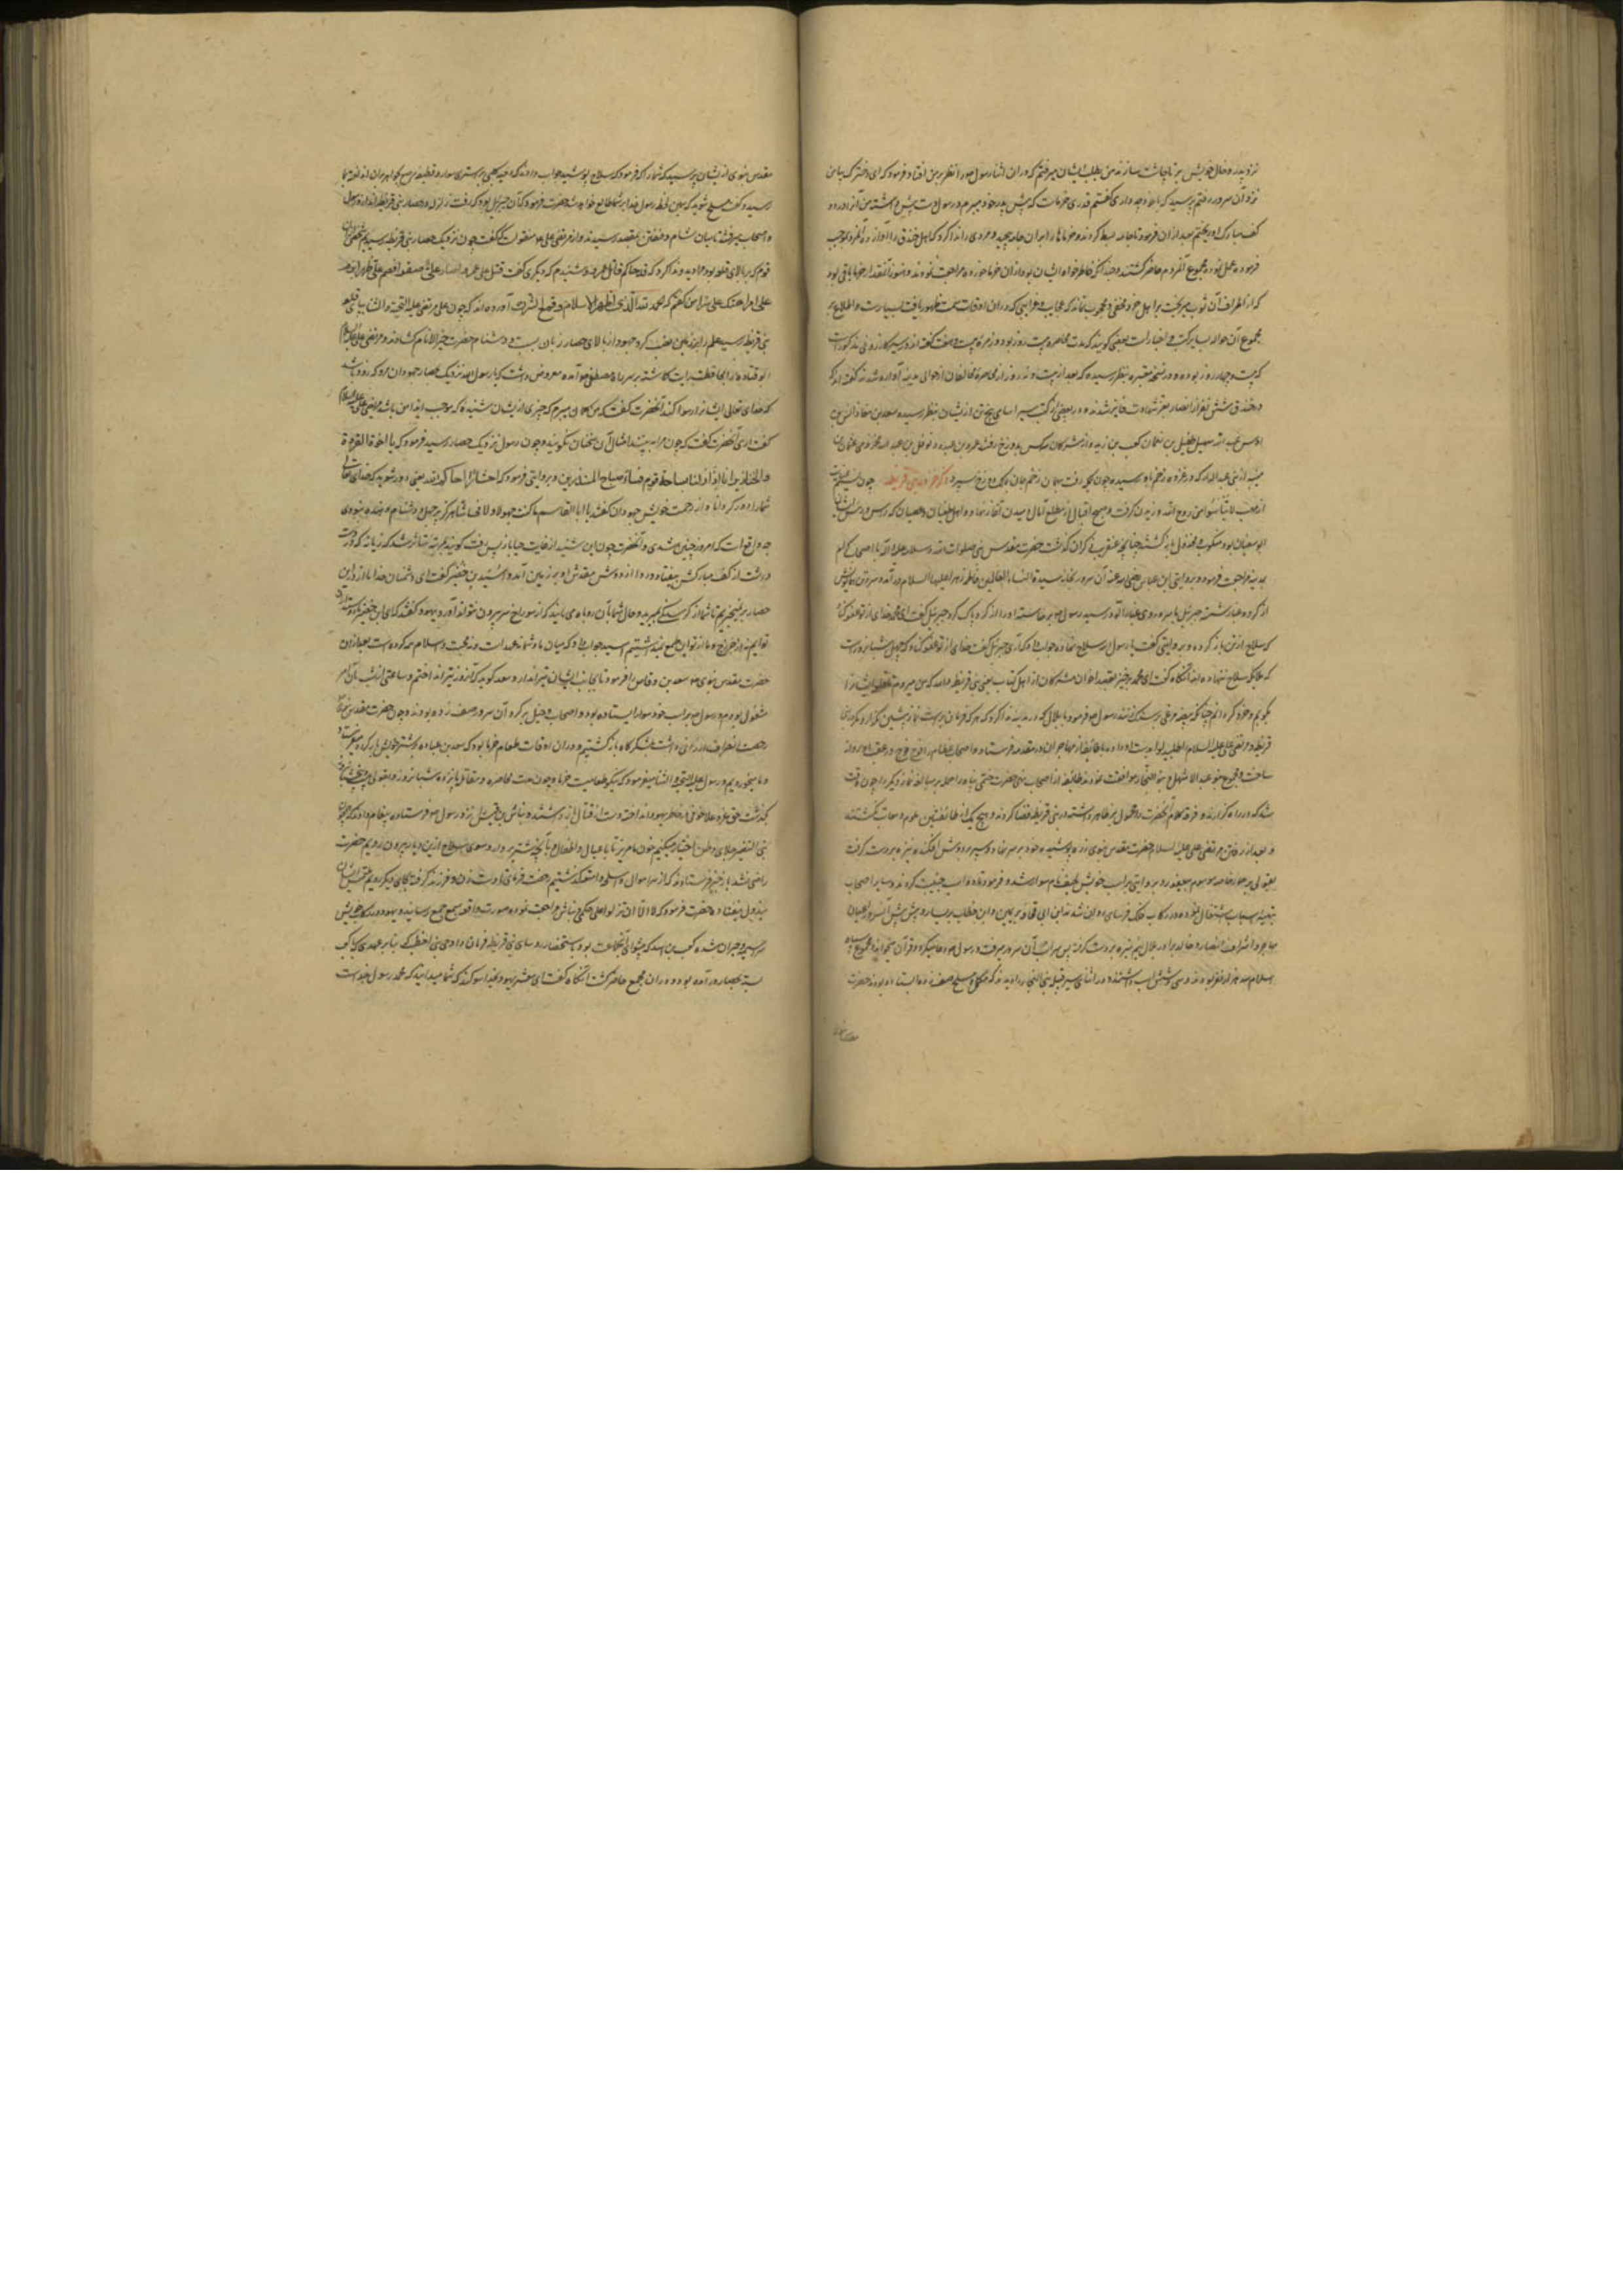 نزد پدر و خال خویش بر تا چاشت سازند من بطلب ایشان میرفتم که دران اثنا رسول را نظر بر من افتاد فرمود که ای دختر که بیا من
نزد آن سرور رفتم پرسید که با خود چه داری گفتم قدری خرماست که پیش پدر خود میبرم
کف مبارک او ریختم بعد ازان فرمود تا جامه بسط کردند و خرماها را بران جامه و مردی را ندا کرد که اهل خندق را آواز ده
فرموده عمل نموده مجموع آنمردم حاضر گشتند و چندانکه خاطر خواه ایشان بود ازان خرما خورده مراجعت نمودند و هنوز آنقدار خرما باقی بود
که از اطراف آن ثوب میریخت بر اهل خرد مخفی و محجوب نماند که عجایب و غرایبی که دران اوقات سمت ظهور یافت بسیارست و اطلاع بر
مجموع آن حواله بسایر کتب و اخبار است بعضی گویند که مدت محاصره بیست روز بود و زمره بیست و هفت گفته اند و در سیر کازرونی مذکور است
که بیست و چهار روز بوده و در نسخه معتبره بنظر رسیده که بعد از بیست و نه روز از محاصره مخالفان از حوالی مدینه آواره شدند گفته اند که
در خندق شش نفر از انصار بعز شهادت فایز شدند و در بعضی از کتب سیر اسامی پنج تن از ایشان بنظر رسیده سعد بن معاذ انس بن
اوس عبد الله سهیل طفیل بن نعمان کعب بن زید و از مشرکان سه کس بدوزخ رفتند عمرو بن عبدود نوفل بن عبد الله مخزومی عثمان بن
منبه از بنی عبد الدار که در غزوه زخم یافته رسیده چون بمکه رفت بهمان زخم جان بمالک دوزخ سپرد ذکر غزوه بنی قریظه چون نسیم نصرت
از مهب لا تیأسوا من روح الله وزیدن گرفت و صبح اقبال از مطلع آمال دمیدن آغاز نهاد و اهل طغیان و عصیان که رئیس ایشان
ابوسفیان بود منکوب و مخذول بازگشتند چنانچه عنقریب ذکر آن گذشت حضرت مقدس نبوی صلوات الله و سلامه علیه و آله با اصحاب کرام
بمدینه مراجعت فرمود و بروایتی ابن عباس رضی الله عنه آن سرور بخانه سیدة النساء العالمین فاطمه زهرا علیها السلام درآمد و سر و تن
از گرد و غبار شسته جبرئیل با سر و روی غبار آلود رسید رسول برخاسته او را از گرد پاک کرد جبرئیل گفت ای محمد خدای از تو عفو کناد
که سلاح از تن باز کرده و بروایتی گفت یا رسول الله سلاح نهاده جواب داد که آری جبرئیل گفت خدای از تو عفو کناد که چهل شبانروز است
که ملایکه سلاح ننهاده اند آنگاه گفت ای محمد برخیز بقصد اخوان مشرکان از اهل کتاب یعنی بنی قریظه والله که من میروم تا قلعه ایشانرا
بکوبم و خورد گردانم چنانکه بیضه مرغی بر سنگ زنند رسول فرمود تا بلال در مدینه ندا کرد که هر که فرمان برست نماز پیشین نگزارد مگر در بنی
قریظه و مرتضی علی علیه السلام را طلبیده لوا بدست او داده با طایفه از مهاجران در مقدمه فرستاد و اصحاب عظام را فوج فوج در عقب او روانه
ساخت و مجموع بنو عبد الاشهل و بنو النجار موافقت نمودند طایفه از اصحاب بنابر امر حضرت ختمی پناه نماز دیگر را چون وقت
شد که در راه گزارند و فرقه کلام آنحضرت را محمول بر ظاهر داشته در بنی قریظه قضا کردند و هیچ یک از طایفتین ملوم و معاتب نگشتند
و بعد از رفتن مرتضی علی علیه السلام حضرت مقدس نبوی زره پوشیده خود بر سر نهاد و سپر بر دوش افکنده نیزه بر دست گرفت
بقولی بر حمار خاصه موسوم بیعفور و بروایتی بر اسب خویش لحیف نام سوار شده و فرمود تا دو اسب جنیبت کردند و سایر اصحاب
بتهیه اسباب اشتغال نموده در رکاب فلک فرسای روان شدند ابن ابی قحافه بر یمین و ابن خطاب بر یسار و پیش پیش آنسرور اعیان
مهاجر و اشراف انصار و خالد
اسلام سه هزار نفر بودند و سی و شش اسب داشتند و در اثنای سیر قبیله بنی النجار را دیدند که مکمل و مسلح صف زده ایستاده بودند حضرت
مقدس نبوی
مقدس نبوی از ایشان پرسید که شما را که فرمود که سلاح پوشید جواب دادند که دحیه کلبی بر استری سوار و قطیفه
رسید و گفت مسلح شوید که همین لحظه رسول خدا بر شما طالع خواهد شد حضرت فرمود که آن جبرئیل بود که رفت تا زلزله در حصار بنی قریظه اندازد رسول
و اصحاب میرفتند تا میان شام و خفتن بمقصد رسیدند و از مرتضی علی منقولست که گفت چون نزدیک حصار بنی قریظه رسیدیم شخصی ازان
قوم که بر بالای قلعه بود مرا دید و ندا کرد که قد جاءکم قاتل عمرو و شنیدم که دیگری گفت قتل علی عمرا صاد علی صقرا قصم علی ظهرا
علی امرا هتک علی سترا من گفتم که الحمد لله الذی اظهر الاسلام و قمع الشرک آورده اند که چون علی مرتضی علیه التحیة و الثنا بپای قلعه
بنی قریظه رسید علم را بر زمین نصب کرد جهود از بالای حصار زبان بسب و دشنام حضرت خیر الانام گشادند و مرتضی علی علیه السلام
ابو قتاده را بمحافظت رایت گماشته بر سر راه مصطفی آمده معروض داشت که یا رسول الله نزدیک حصار جهودان مرو که زود باشد
که خدای تعالی ایشانرا رسوا کند آنحضرت گفت که من گمان میبرم که چیزی از ایشان شنیده که موجب ایذای من باشد مرتضی علی علیه السلام
گفت آری آنحضرت گفت که چون مرا به بینند امثال آن سخنان نگویند و چون رسول نزدیک حصار رسید فرمود که یا اخوة القردة
و الخنازیر انا اذا نزلنا بساحة قوم فساء صباح المنذرین و بروایتی فرمود که اخسئوا اخساکم الله یعنی دور شوید که خدای تعالی
شما را دور گرداناد از رحمت خویش جهودان گفتند یا ابا القاسم ما کنت جهولا و لا فحاشا هرگز بر جهل و دشنام دهنده نبودی
چه واقع است که امروز چنین شدی و آنحضرت چون این شنید از غایت حیا باز پس رفت گویند بمرتبه متأثر شد که نیزه که در دست
داشت از کف مبارکش بیفتاد و ردا از دوش مقدس او بر زمین آمد و اسید بن حضیر گفت ای دشمنان خدا ما از در این
حصار بر نخیزیم تا شما از گرسنگی بمیرید و حال شما بآن روباه می ماند که از سوراخ سر بیرون نتواند آورد یهود گفتند که ای ابن حضیر ما دوستان
توایم نه از خزرج و ما از تو این طمع نمیداشتیم اسید جواب داد که میان ما و شما نه عهد است و نه محبت و اسلام همه گروه است بعد ازان
حضرت مقدس نبوی سعد بن وقاص را فرمود تا بجانب ایشان تیر اندازد و سعد گوید که آنروز تیر انداختم و ساعتی از شب بآن امر
مشغول بودم و رسول بر اسب خود سوار ایستاده بود و اصحاب و خیل بر گرد آن سرور صف زده بودند و چون حضرت مقدس نبوی
رخصت انصراف ارزانی داشت بلشکرگاه بازگشتیم و دران اوقات طعام خرما بود که سعد بن عباده بر شتر خویش بار کرده میفرستاد
و ما میخوردیم و رسول علیه التحیة و الثنا میفرمود که نیکو طعامیست خرما و چون مدت محاصره و مقاتله پانزده شبانروز و بقولی بیست و پنج شبانروز
بگذشت حق عز و علا خوفی در خاطر یهود انداخته دست از قتال باز داشتند و نباش بن قیس را نزد رسول فرستاده پیغام دادند که چون
بنی النضیر جلای وطن اختیار میکنیم خون ما مریز تا با عیال و اطفال و آنچه شتر بردارد سوای سلاح ازین دیار بیرون رویم حضرت
راضی نشد باز خبر فرستادند که از سر اموال و اسلحه و امتعه گذشتیم رخصت فرمای تا دست زن و فرزند گرفته بجای دیگر رویم ملتمس ایشان
مبذول نیفتاد و حضرت فرمود که لا الا ان تنزلوا علی حکمی نباش مراجعت نموده صورت واقعه بسمع جمع رسانید و یهود در کار خویش
سراسیمه و حیران شده کعب بن اسد که پیشوای آن جماعت بود باستحضار روسای بنی قریظه فرمان داد و حیی بن اخطب که بنابر عهدی که با کعب
بسته بحصار درآمده بود دران مجمع حاضر گشت آنگاه گفت ای معشر یهود بخدا سوگند که شما میدانید که محمد رسول خداست